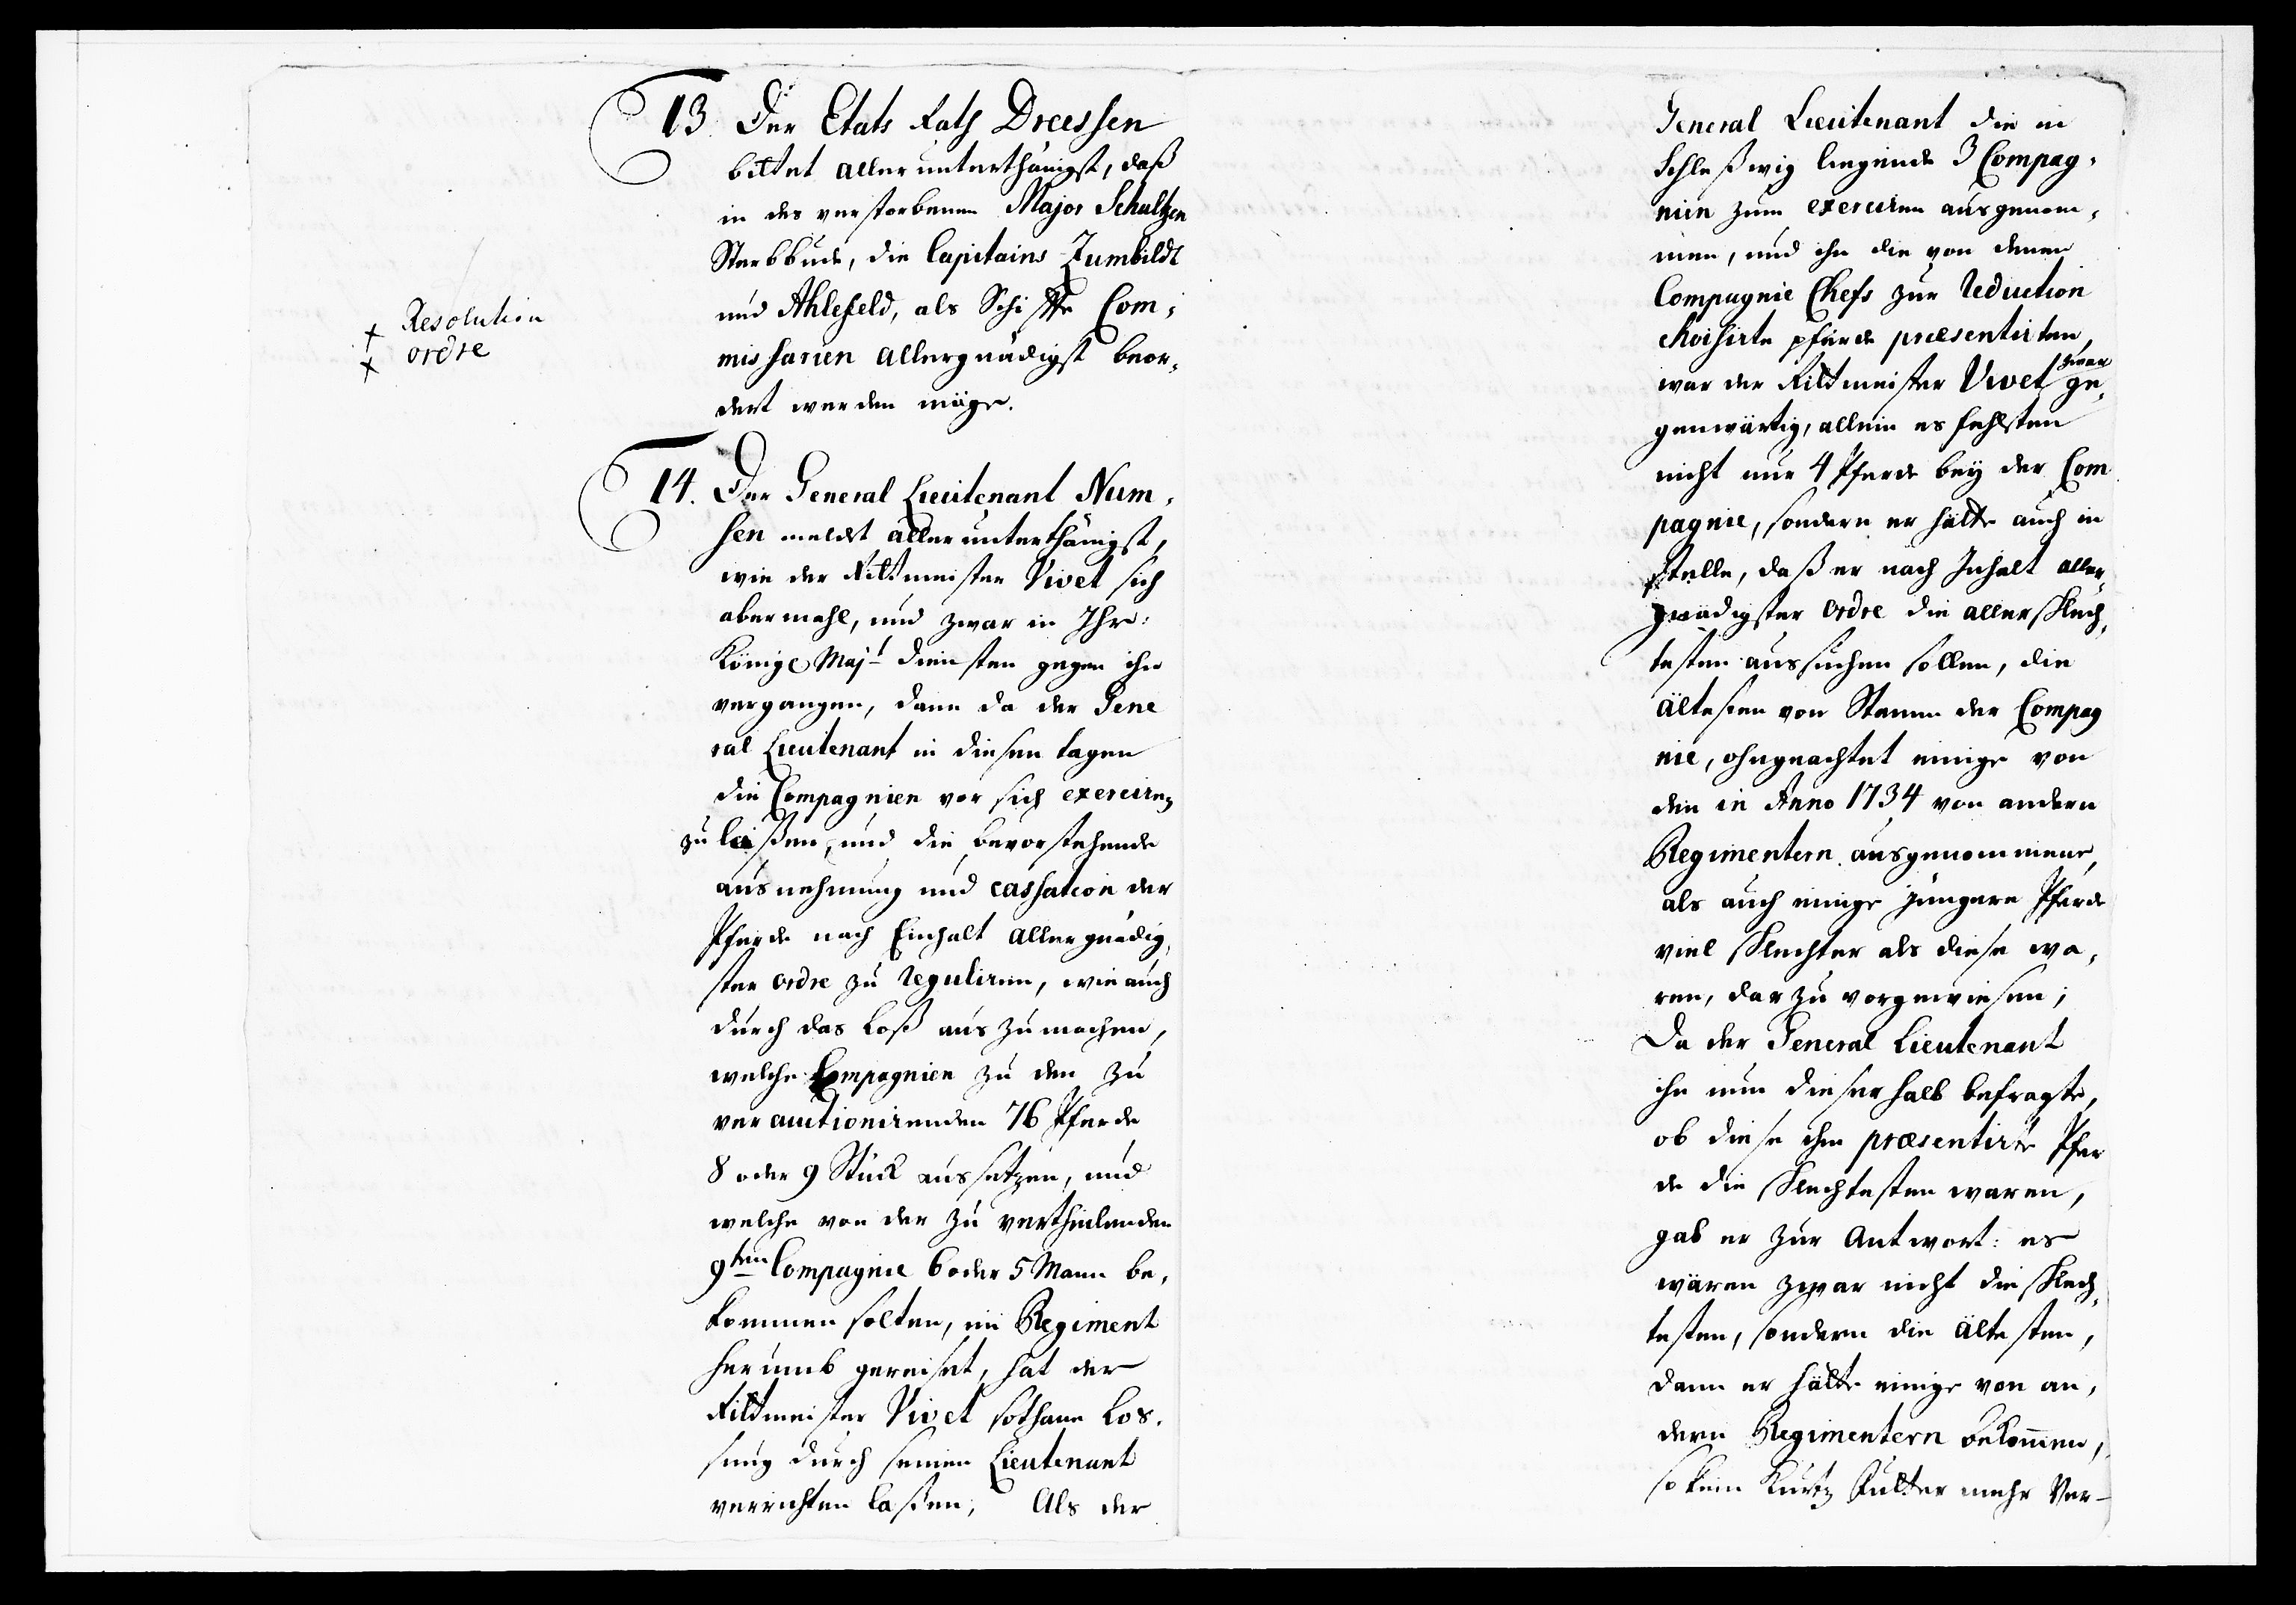 13. Der Etats Rath Dreessen
bittet allerunterthänigst, daß
in des verstorbenen Major Schultzen
Sterbbude, die Capitains Zumbildt
und Ahlefeld, als Schiffte Com-
missarien allergnädigst beor-
dert werden möge.
+ Resolution
+ ordre
14. Der General Lieutenant Num-
sen meldet allerunterthänigst,
wie der Rittmeister Vivet sich
abermahl, und zwar in Ihr:
Königl Majt diensten gegen ihn
vergangen, dann da der Gene
ral Lieutenant in diesen tagen
die Compagnien vor sich exerciren
zu laßen, und die bevorstehende
ausnehmung und cassation der
Pferde nach Einhalt allergnädig-
ster ordre zu reguliren, wie auch
durch das Loß auszumachen,
welche Compagnien zu den zu
verauctionirenden 76 Pferde
8 oder 9 Stück aussetzen, und
welche von der zu vertheilenden
9ten Compagnie 6 oder 5 Mann be-
kommen solten, im Regiment
herumb gereiset, hat der
Rittmeister Vivet sothane Los-
sung durch seinen Lieutenant
verrichten laßen; Als der
General Lieutenant die in
Schleßwig liegende 3 Compag-
nien zum exerciren ausgenom-
men, und ihn die von denen
Compagnie Chefs zur Reduction
choisirte pferde præsentirten,
war der Rittmeister Vivet zwar ge-
genwärtig, allein es fehlten
nicht nur 4 Pferde bey der Com
pagnie, sondern er hatte auch in
stelle, daß er nach Inhalt aller-
gnädigster ordre die allerschlech-
testen aussuchen sollen, die
ältesten von Stamm der Compag
nie, ohngeachtet einige von
den in Anno 1734 von andern
Regimentern ausgenommene,
als auch einige jüngere Pferde
viel schlechter als diese wa-
ren, darzu vorgewiesen;
Da der General Lieutenant
ihn nun dieserhalb befragte,
ob diese ihm præsentirte Pfer
de die schlechtesten waren,
gab er zur Antwort: es
wären zwar nicht die schlech-
testen, sondern die ältesten,
dann er hätte einige von an-
dern Regimentern bekommen,
so kein Kurtz Futter mehr Ver-